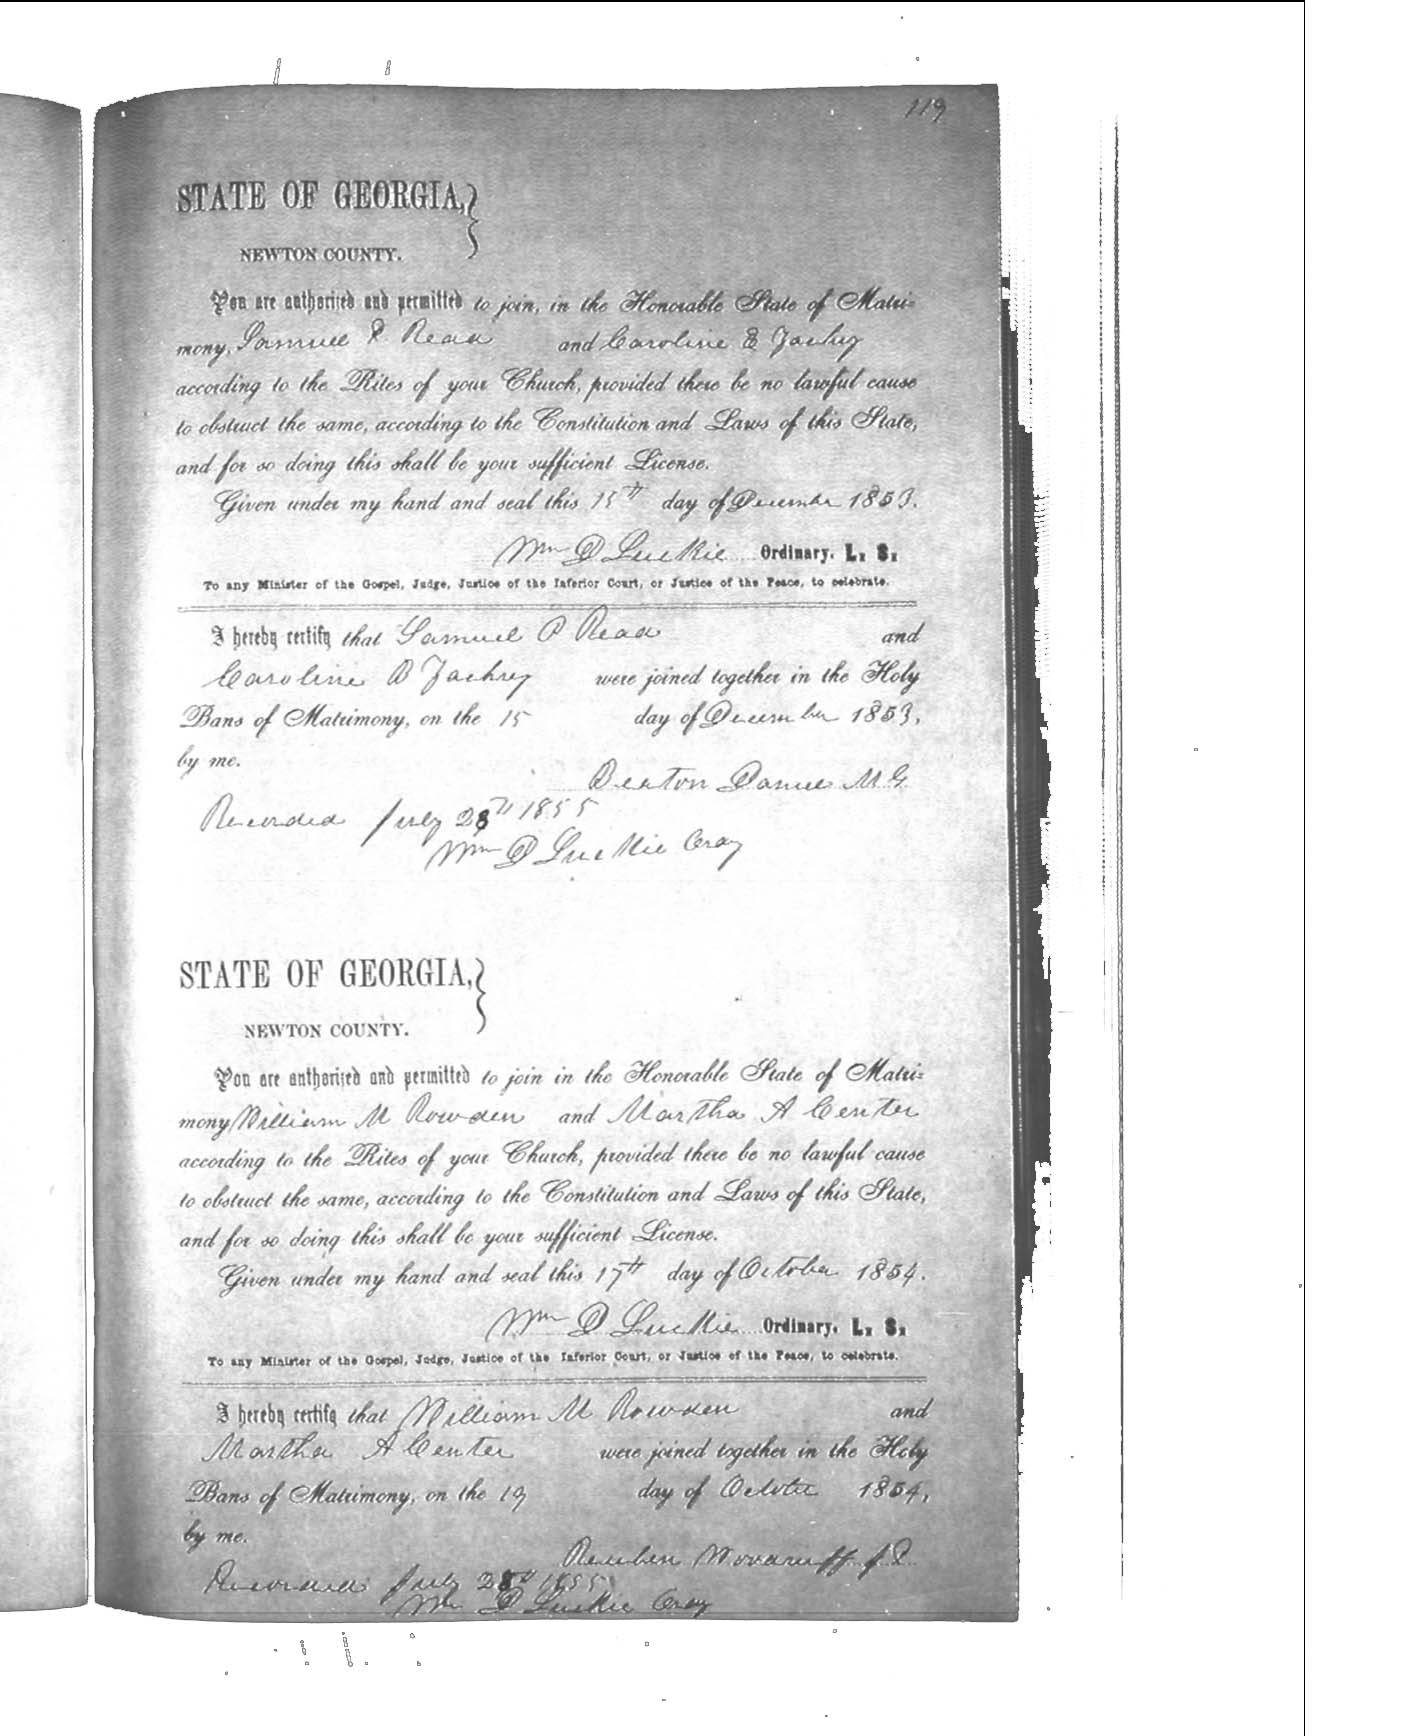 119
STATE OF GEORGIA,
NEWTON COUNTY.
You are authorized and permitted to join, in the Honorable State of Matri-
mony, Samuel P Read and Caroline B Zachry
according to the Rites of your Church, provided there be no lawful cause
to obstruct the same, according to the Constitution and Laws of this State,
and for so doing this shall be your sufficient License.
Given under my hand and seal this 15th day of December 1853.
Wm D Luckie Ordinary. L. S.
To any Minister of the Gospel, Judge, Justice of the Inferior Court, or Justice of the Peace, to celebrate.
I hereby certify that Samuel P Read and
Caroline B Zachry were joined together in the Holy
Bans of Matrimony, on the 15 day of December 1853,
by me.
Daniel M G
Recorded July 28th 1855
Wm D Luckie Ordy
STATE OF GEORGIA,
NEWTON COUNTY.
You are authorized and permitted to join in the Honorable State of Matri-
mony William M Rowden and Martha A Center
according to the Rites of your Church, provided there be no lawful cause
to obstruct the same, according to the Constitution and Laws of this State,
and for so doing this shall be your sufficient License.
Given under my hand and seal this 17th day of October 1854.
Wm D Luckie Ordinary. L. S.
To any Minister of the Gospel, Judge, Justice of the Inferior Court, or Justice of the Peace, to celebrate.
I hereby certify that William M Rowden and
Martha A Center were joined together in the Holy
Bans of Matrimony, on the 19 day of October 1854,
by me.
Reuben Woodruff J.P.
Recorded July 28th 1855
Wm D Luckie Ordy